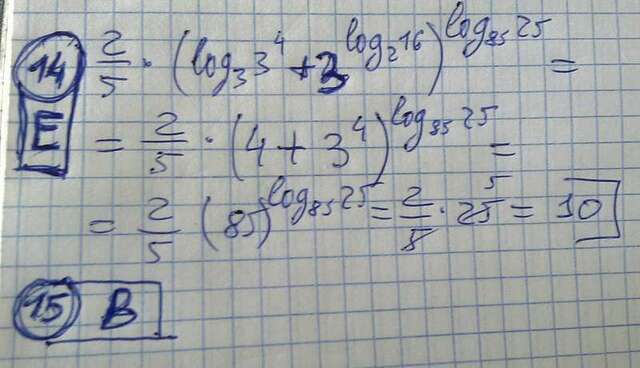 14 2/5 · (log₃3⁴ + 3^(log₂16))^(log₈₅25) =
E = 2/5 · (4 + 3⁴)^(log₈₅25) =
= 2/5 · (85)^(log₈₅25) = 2/5 · 25 5 = 10
15 B